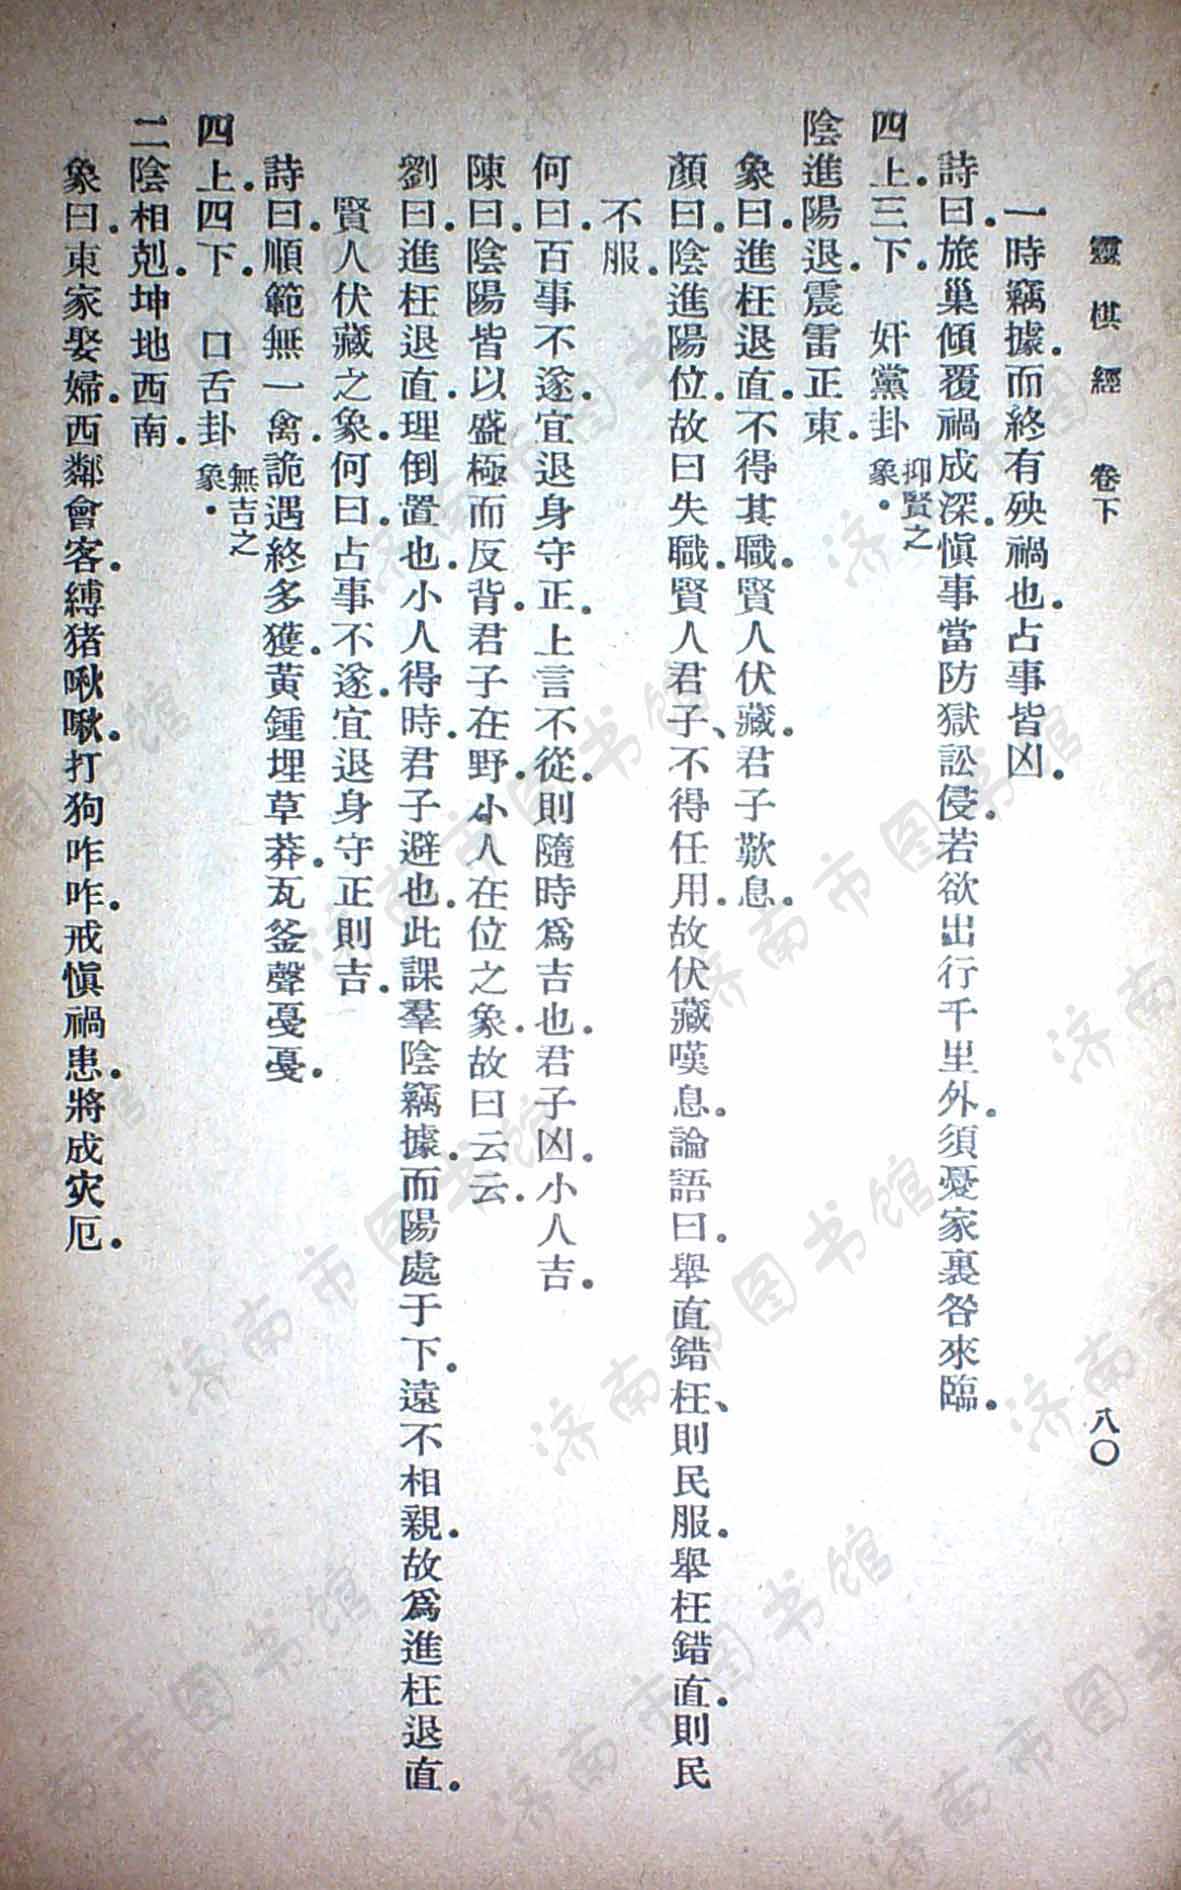 靈棋經 卷下 八〇
一時竊據.而終有殃禍也.占事皆凶.
詩曰.旅巢傾覆禍成深.愼事當防獄訟侵.若欲出行千里外.須憂家裏咎來臨.
四上.三下. 奸黨卦 抑賢之象.
陰進陽退.震雷正東.
象曰.進枉退直.不得其職.賢人伏藏.君子歎息.
顏曰.陰進陽位.故曰失職.賢人君子、不得任用.故伏藏嘆息.論語曰.舉直錯枉、則民服.舉枉錯直.則民
不服.
何曰.百事不遂.宜退身守正.上言不從.則隨時爲吉也.君子凶.小人吉.
陳曰.陰陽皆以盛極而反背.君子在野.小人在位之象.故曰云云.
劉曰.進枉退直.理倒置也.小人得時.君子避也.此課羣陰竊據.而陽處于下.遠不相親.故爲進枉退直.
賢人伏藏之象.何曰.占事不遂.宜退身守正則吉.
詩曰.順範無一禽.詭遇終多獲.黃鍾埋草莽.瓦釜聲戞戞.
四上.四下. 口舌卦 無吉之象.
二陰相剋.坤地西南.
象曰.東家娶婦.西鄰會客.縛猪啾啾.打狗咋咋.戒愼禍患.將成灾厄.
济南市图书馆